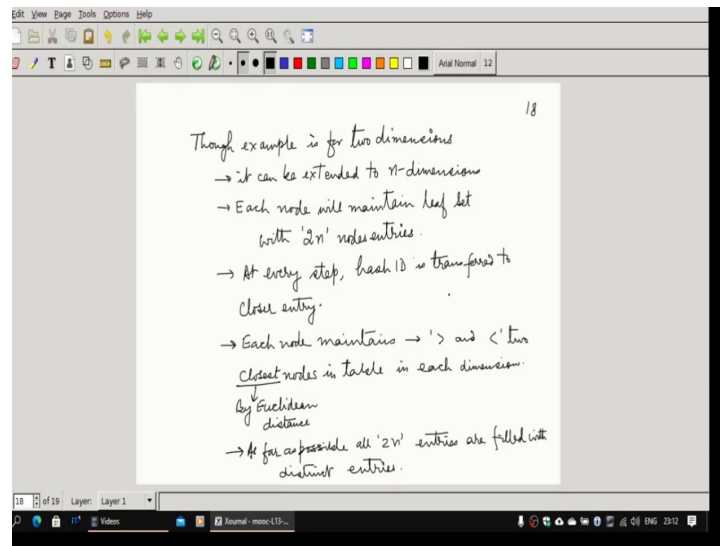 Edit View Page Tools Options Help
T
Arial Normal 12
18
Though example is for two dimensions
→ it can be extended to n-dimensions
→ Each node will maintain leaf set
with '2n' nodes entries.
→ At every step, hash ID is transferred to
closer entry.
→ Each node maintains → '> and <' two
closest nodes in table in each dimension.
By Euclidean
distance
→ As far as possible all '2n' entries are filled with
distinct entries.
18 of 19 Layer: Layer 1
Videos Xournal - mooc-L13-... ENG 23:12